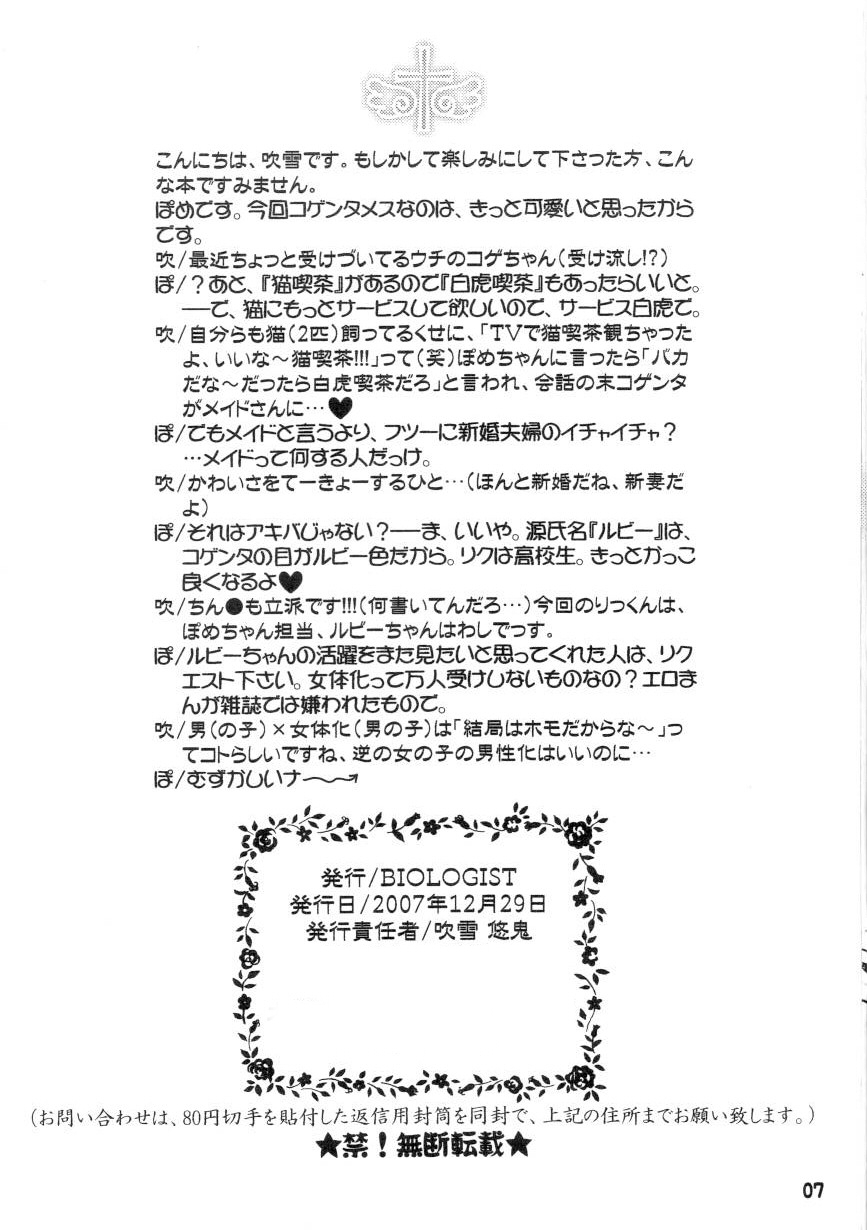 こんにちは、吹雪です。もしかして楽しみにして下さった方、こん
な本ですみません。
ぽめです。今回コゲンタメスなのは、きっと可愛いと思ったから
です。
吹/最近ちょっと受けづいてるウチのコゲちゃん(受け流し!?)
ぽ/？あと、『猫喫茶』があるので『白虎喫茶』もあったらいいと。
──で、猫にもっとサービスして欲しいので、サービス白虎で。
吹/自分らも猫(2匹)飼ってるくせに、「TVで猫喫茶観ちゃった
よ、いいな〜猫喫茶!!!」って(笑)ぽめちゃんに言ったら「バカ
だな〜だったら白虎喫茶だろ」と言われ、会話の末コゲンタ
がメイドさんに…♥
ぽ/でもメイドと言うより、フツーに新婚夫婦のイチャイチャ？
…メイドって何する人だっけ。
吹/かわいさをてーきょーするひと…(ほんと新婚だね、新妻だ
よ)
ぽ/それはアキバじゃない？──ま、いいや。源氏名『ルビー』は、
コゲンタの目がルビー色だから。リクは高校生。きっとかっこ
良くなるよ♥
吹/ちん●も立派です!!!(何書いてんだろ…)今回のりっくんは、
ぽめちゃん担当、ルビーちゃんはわしでっす。
ぽ/ルビーちゃんの活躍をまた見たいと思ってくれた人は、リク
エスト下さい。女体化って万人受けしないものなの？エロま
んが雑誌では嫌われたもので。
吹/男(の子)×女体化(男の子)は「結局はホモだからな〜」っ
てコトらしいですね、逆の女の子の男性化はいいのに…
ぽ/むずかしいナ〜〜→
発行/BIOLOGIST
発行日/2007年12月29日
発行責任者/吹雪 悠鬼
(お問い合わせは、80円切手を貼付した返信用封筒を同封で、上記の住所までお願い致します。)
★禁！無断転載★
07